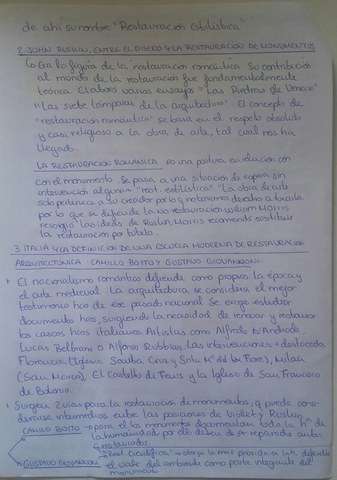 de ahí su nombre "Restauración Estilística"
2. JOHN RUSKIN, ENTRE EL DISEÑO Y LA RESTAURACIÓN DE MONUMENTOS
Es la figura de la restauración romántica. Su contribución
al mundo de la restauración fue fundamentalmente
teórica. Elaboró varios ensayos "Las Piedras de Venecia"
"Las siete lámparas de la arquitectura". El concepto de
"restauración romántica" se basa en el respeto absoluto
y casi religioso a la obra de arte, tal cual nos ha
llegado.
LA RESTAURACIÓN ROMÁNTICA es una postura en relación
con el monumento. Se pasa a una situación de copia sin
intervención alguna "rest. estilística". "La obra de arte
solo pertenece a su creador por lo q no tenemos derecho a tocarla
por lo que se defiende la no restauración William Morris
recogió las ideas de Ruskin, Morris recomienda sustituir
la restauración por tutela.
3. ITALIA Y LA DEFINICIÓN DE UNA ESCUELA MODERNA DE RESTAURACIÓN
ARQUITECTÓNICA: CAMILLO BOITO Y GUSTAVO GIOVANNONI.
El nacionalismo romántico defiende como propios la época y
el arte medieval. La arquitectura se considera el mejor
testimonio hco de ese pasado nacional. Se exige estudiar
documentos hcos, surgiendo la necesidad de innovar y restaurar
los cascos hcos italianos. Artistas como Alfredo D'Andrade,
Lucas Beltrami o Alfonso Rubbiani, las intervenciones + destacadas,
Florencia (Iglesia Santa Cruz y Sta Mª del las Flores), Milán
(San Marco), El Castello de Fenis y la Iglesia de San Francisco
de Bolonia.
Surgen 2 vías para la restauración de monumentos, q puede consi-
derarse intermedias entre las posiciones de Viollet y Ruskin.
CAMILLO BOITO → para él los monumentos documentan toda la hª de
la humanidad por ello deben de ser reparados antes
q restaurados.
"Rest. Científica" → otorga la max precisión a la h, defiende
GUSTAVO GIOVANNONI el valor del ambiente como parte integrante del
monumento